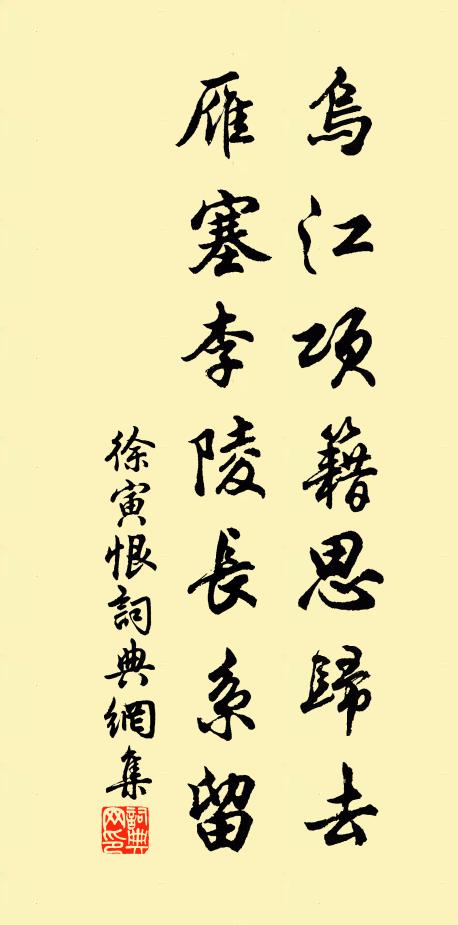 烏江項籍思歸去
雁塞李陵長系留
徐寅恨詞典網集
詞典网印